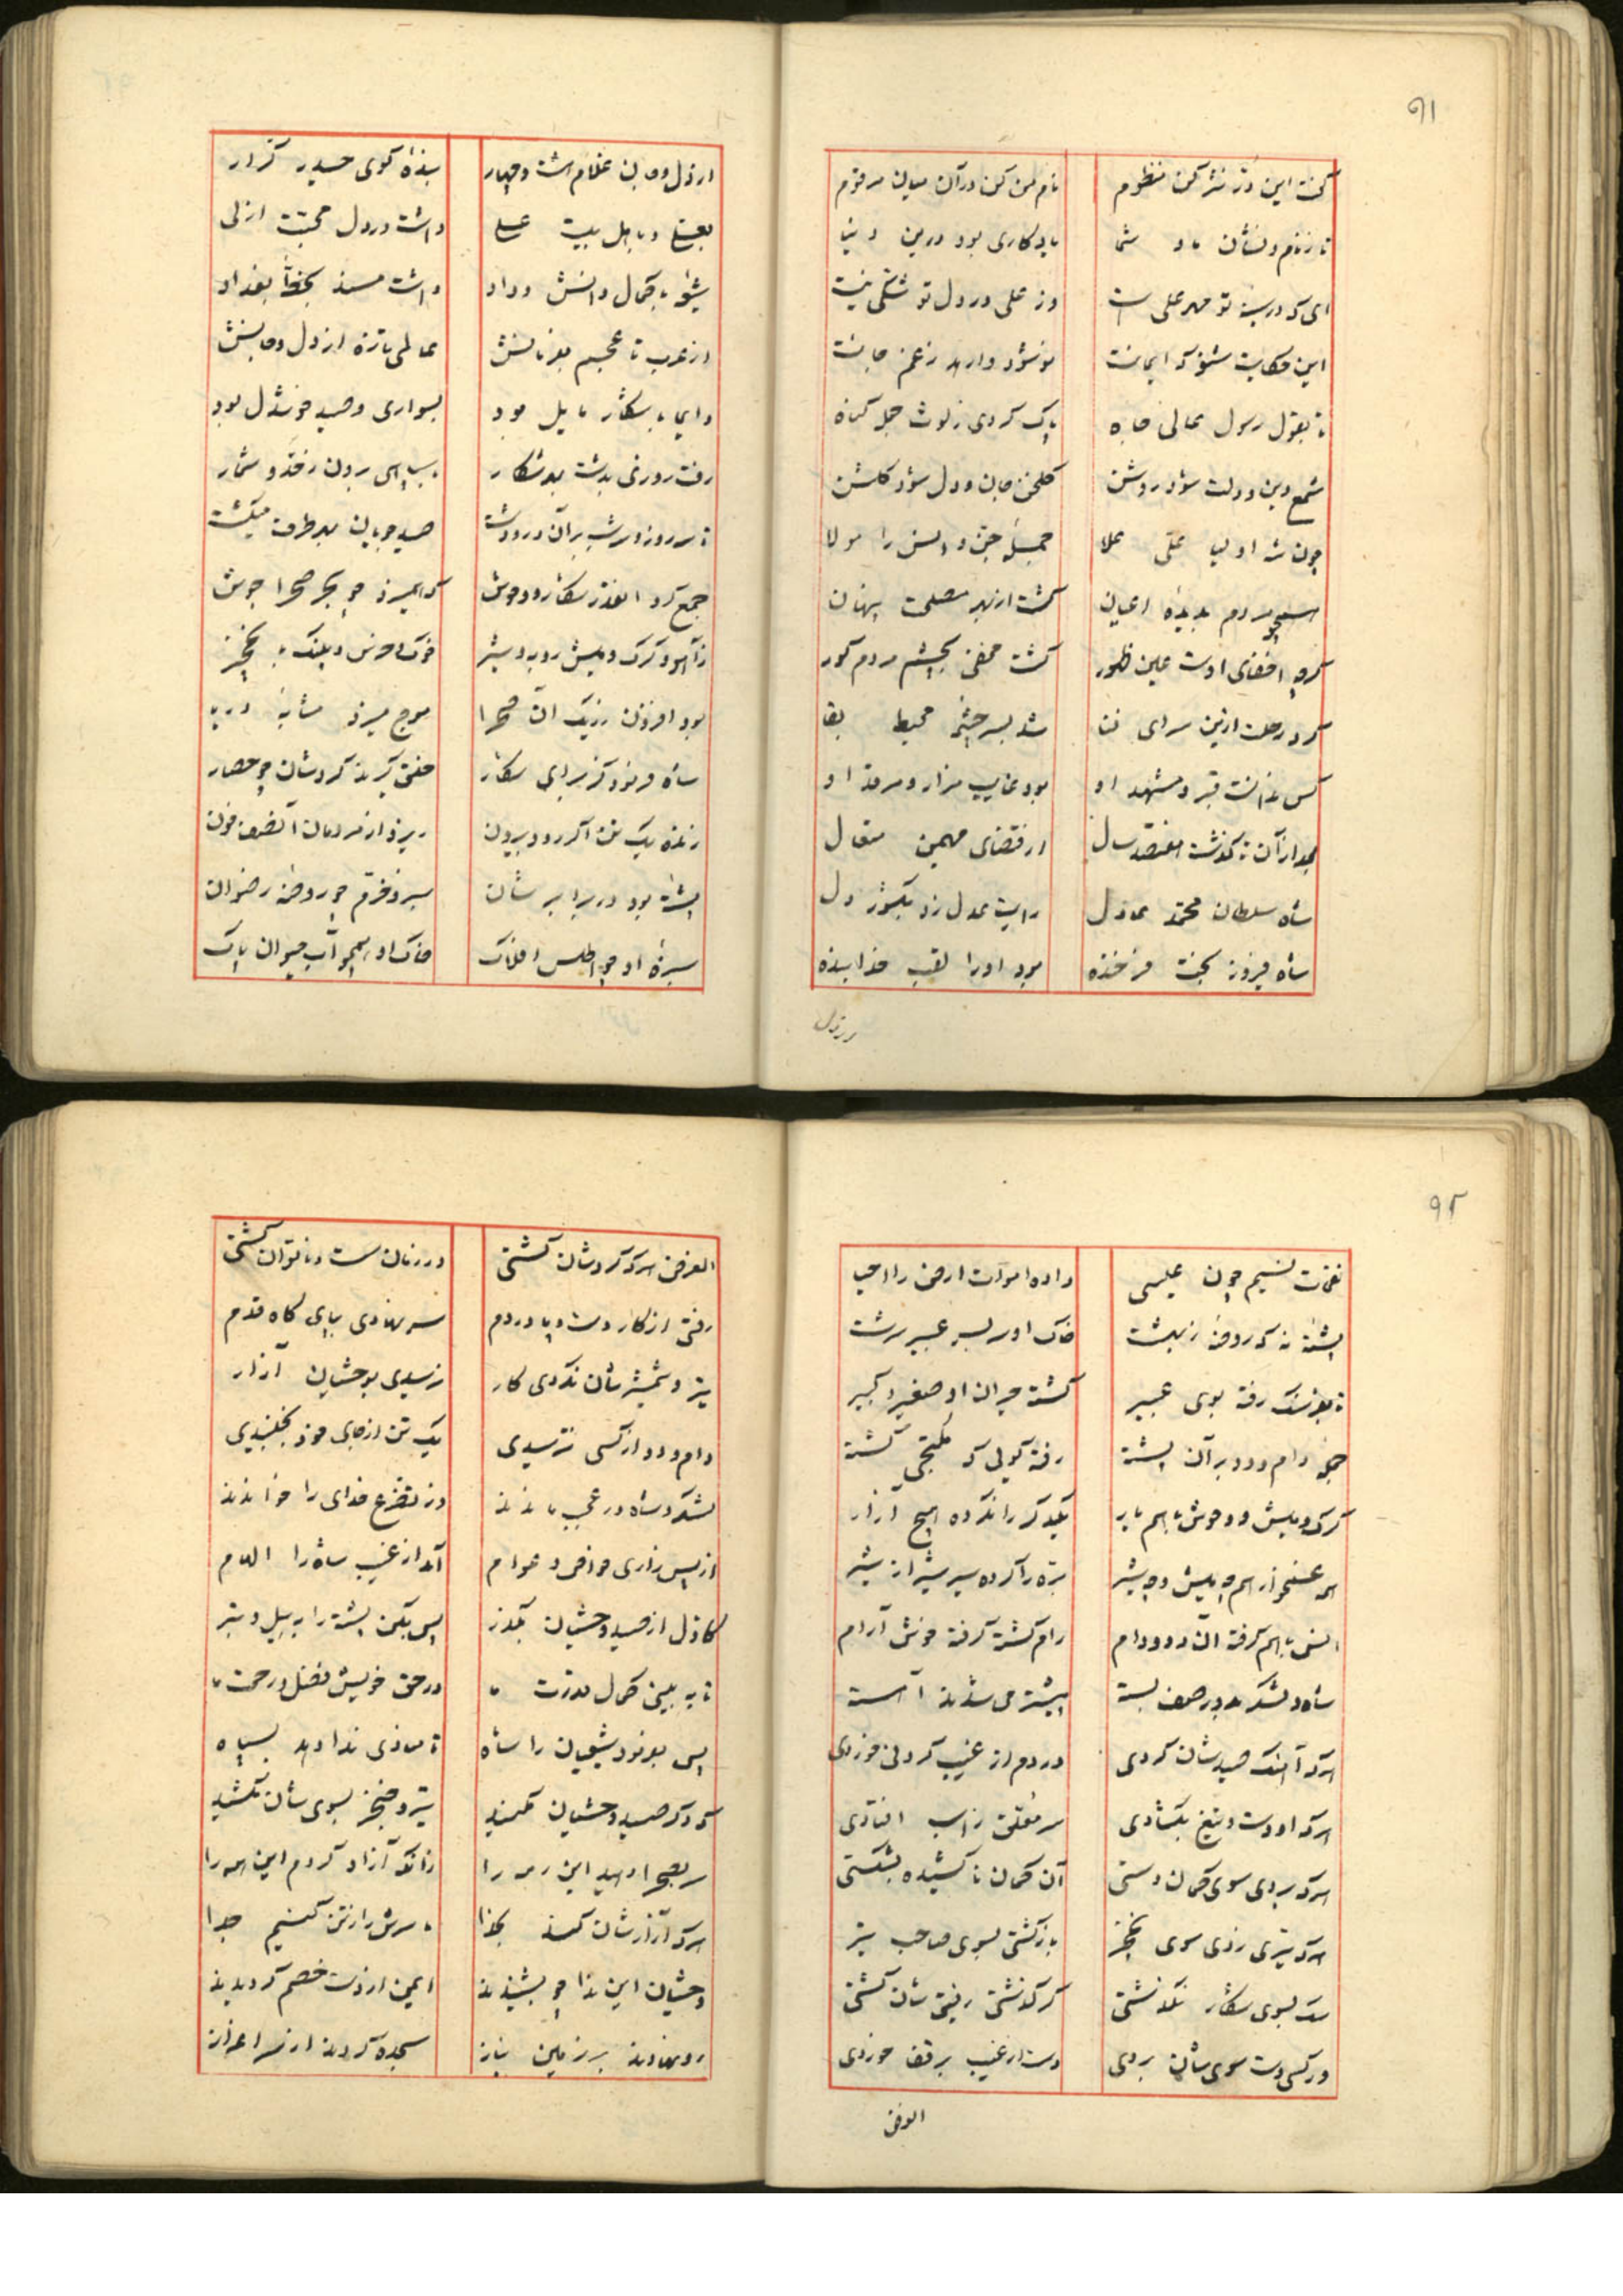 ۹۱
گفت این در نثر کن منظوم
نام من کن در آن میان مرقوم
تا ز نام و نشان ما و شما
یادکاری بود درین دنیا
ای که در سینه تو مهر علی است
وز علی در دل تو شکی نیست
این حکایت شنو که ایمانت
نو شود وارهد ز غم جانت
تا بقول رسول عالی جاه
پاک کردی ز لوث جمله کناه
شمع دین و دولت شود روشن
کلخن جان و دل شود کلشن
چون شه اولیا علی علا
جمله جن و انس را مولا
همچو مردم بدیده اعیان
گشت از بهر مصلحت پنهان
کرچه اخفای اوست عین ظهور
گشت مخفی بچشم مردم کور
کرد رحلت ازین سرای فنا
شد بسرچشمه محیط بقا
کس ندانست قبر و مشهد او
بود غایب مزار و مرقد او
بعد از آن تا گذشت هفتصد سال
از قضای مهیمن متعال
شاه سلطان محمد عادل
رایت عدل زد بکشور دل
شاه فیروز بخت فرخنده
بود او را لقب خدابنده
از دل و جان غلام هشت و چهار
بنده کوی حیدر کرار
بعلی و باهل بیت علی
داشت در دل محبت ازلی
با کمال دانش و داد
داشت مسند بخطه بغداد
از عرب تا عجم بفرمانش
عالمی تازه از دل و جانش
دایما با شکار مایل بود
بسواری و صید خوشدل بود
رفت روزی بدشت بهر شکار
با سپاهی برون ز حد و شمار
تا سه روز و سه شب بر آن در و دشت
صید جویان بهر طرف میگشت
جمع کرد آنقدر شکار و وحوش
که همیزد چو بحر صحرا جوش
ز آهو و کرک و میش و روبه و شیر
خوک و خرس و پلنک با نخجیر
بود افزون ز ریک آن صحرا
موج میزد مثابه دریا
شاه فرمود کز برای شکار
حلقه گیرند گردشان چو حصار
زنده یک تن اگر رود بیرون
ریزد از مردمان آنصف خون
پشته بود در برابر شان
سبز و خرم چو روضه رضوان
سبزه او چو اطلس افلاک
خاک او همچو آب حیوان پاک
۹۲
نفحات نسیم چون عیسی
داده اموات ارض را احیا
پشته نه که روضه ز بهشت
خاک او سر بسر عبیر سرشت
تا بفرسنک رفته بوی عبیر
گشته حیران او صغیر و کبیر
خیل دام و دد بر آن پشته
رفته کویی که ملتجی گشته
کرک و میش و وحوش با هم یار
یکدگر را نکرده هیچ آزار
همه غمخوار هم چه میش و چه شیر
بره را کرده سیر شیر از شیر
انس با هم گرفته آن دد و دام
رام گشته گرفته خوش آرام
شاه و لشکر همه در صف بسته
پیشتر می شدند آهسته
هر که آهنک صیدشان کردی
در دم از غیب گردنی خوردی
هر که او دست و تیغ بکشادی
سر معلق ز اسب افتادی
هر که بردی سوی کمان دستی
آن کمان نا کشیده بشکستی
هر که تیری زدی سوی نخجیر
باز گشتی بسوی صاحب تیر
سک بسوی شکار نگذشتی
گر گذشتی رفیق شان گشتی
ور کسی دست سوی شان بردی
دست از غیب بر قفا خوردی
الغرض
الغرض هر که گردشان گشتی
در زمان سست و ناتوان گشتی
رفتی از کار دست و پا در دم
سر نهادی بپای کاه قدم
تیر و شمشیرشان نکردی کار
نرسیدی بوحشیان آزار
دام و دد از کسی نترسیدی
یک تن از جای خود نجنبیدی
لشکر و شاه در عجب ماندند
وز تضرع خدای را خواندند
از پس زاری خواص و عوام
آمد از غیب شاه را الهام
کاول از صید وحشیان بگذر
پس بکن پشته را به بیل و تبر
تا به بینی کمال قدرت ما
در حق خویش فضل و رحمت ما
پس بفرمود شیعیان را شاه
تا منادی ندا دهد بسپاه
که دگر صید وحشیان نکنید
تیر و خنجر بسوی شان نکشید
سر بصحرا دهید این رمه را
زانکه آزاد کردم این همه را
هر که آزارشان کند بخدا
ما سرش را ز تن کنیم جدا
وحشیان این ندا چو بشنیدند
ایمن از دست خصم گردیدند
رو نهادند بر زمین نیاز
سجده کردند از سر اعزاز